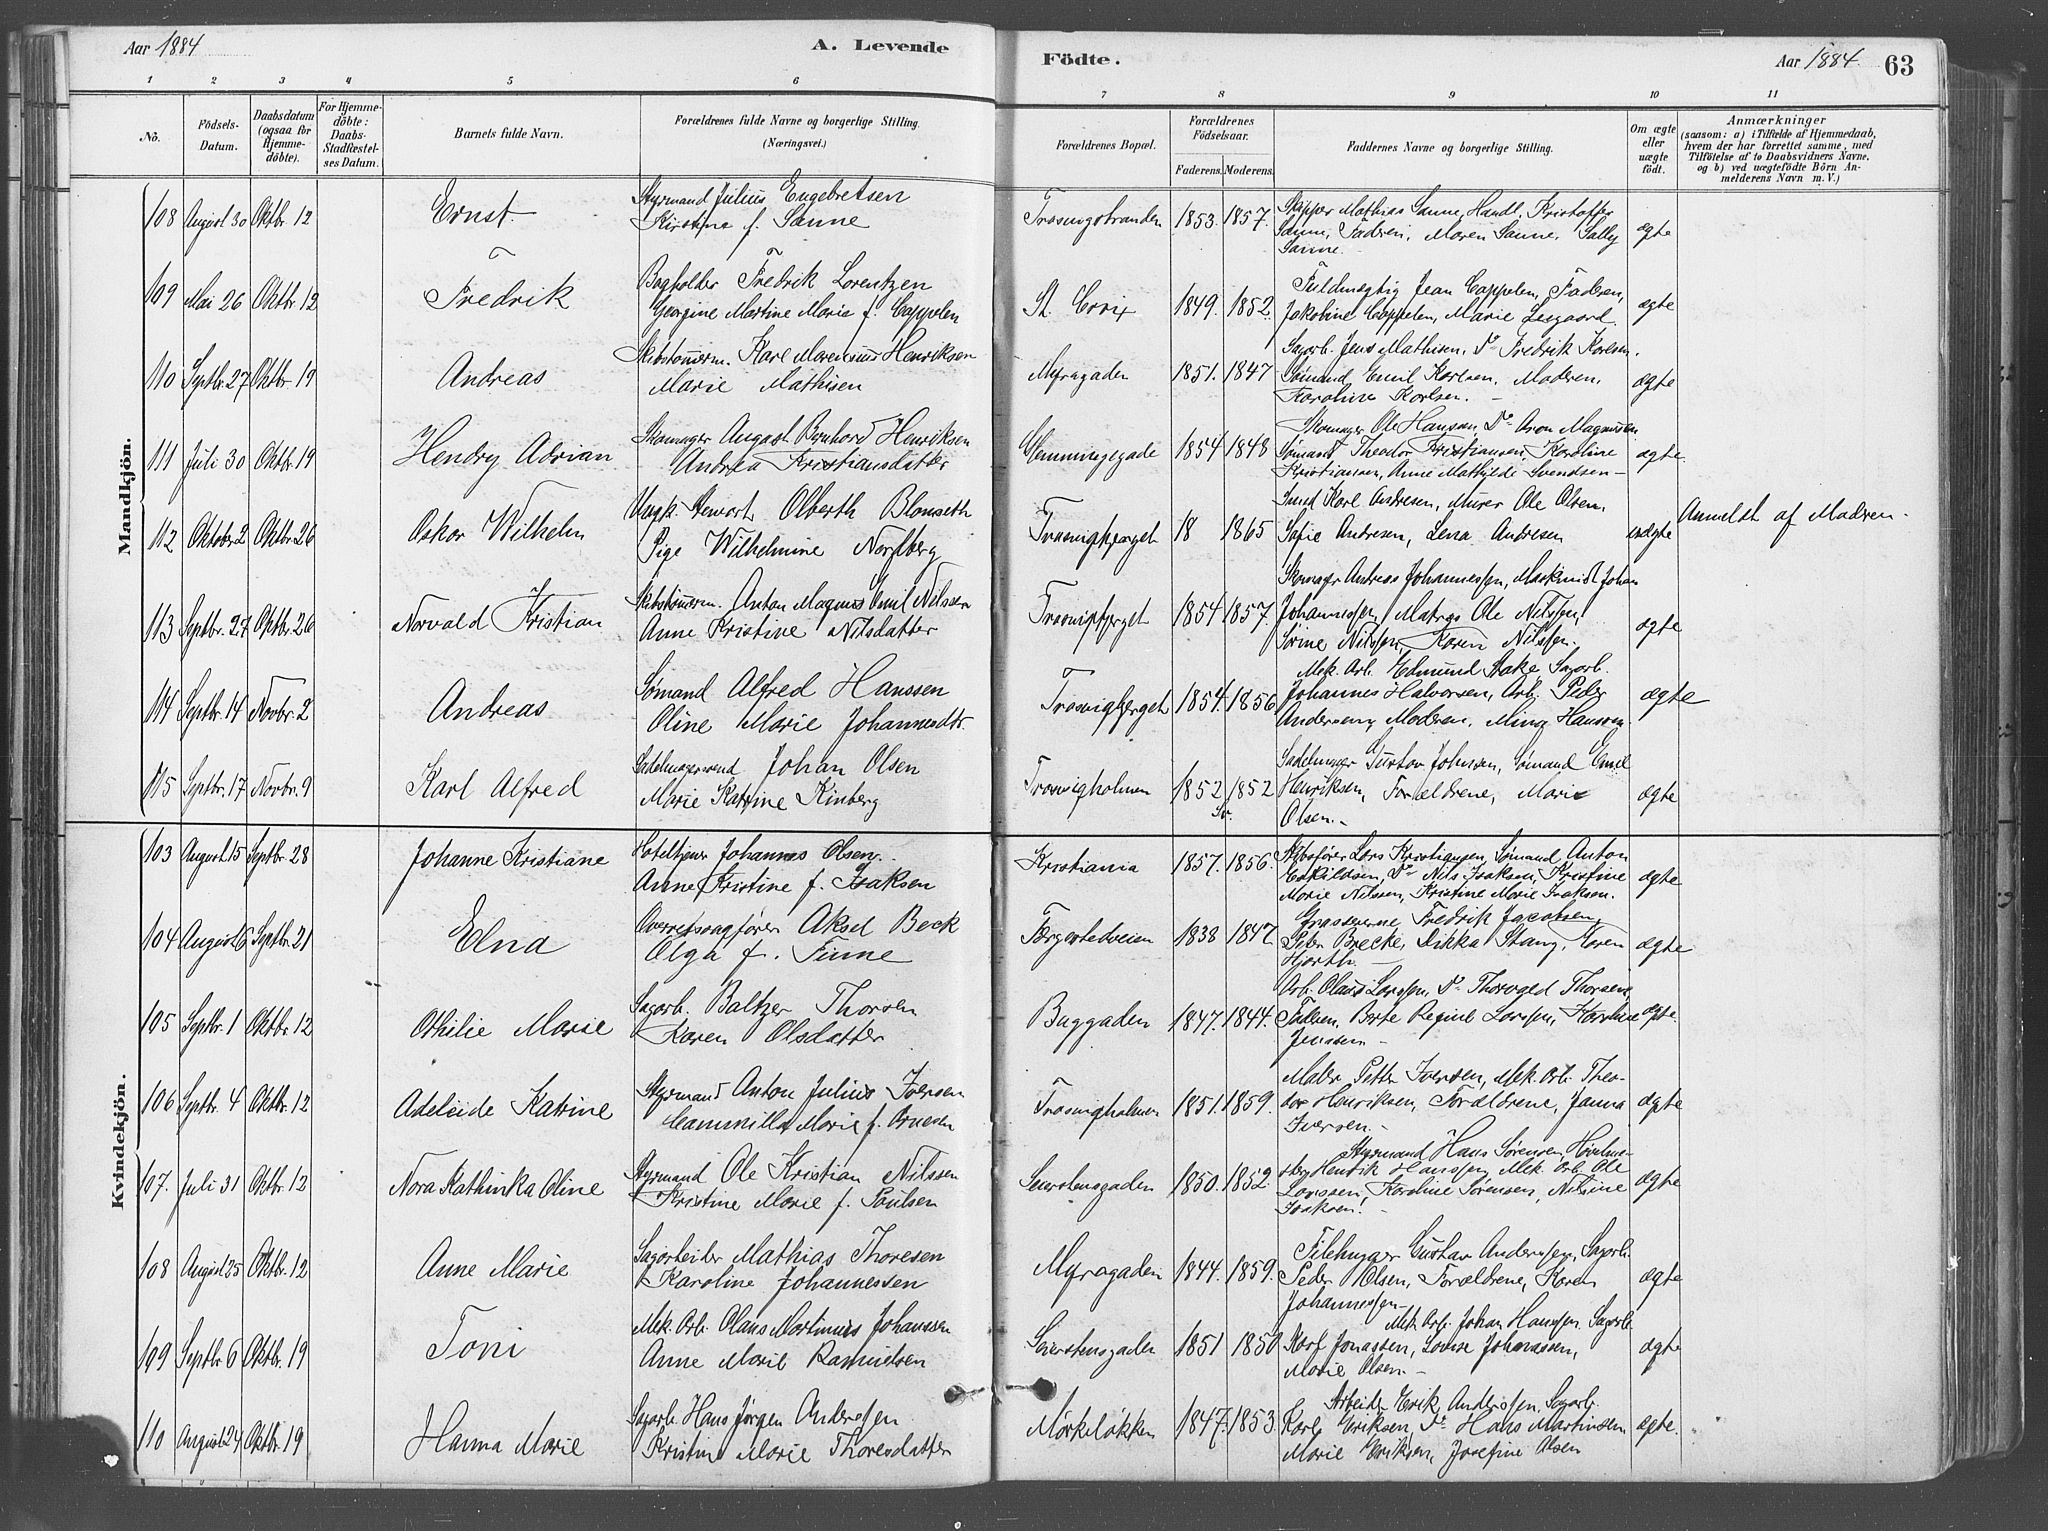 Aar 1884
A. Levende
Födte.
Aar 1884.
63
1 2 3 4 5 6 7 8 9 10 11
No.
Födsels-Datum.
Daabsdatum (ogsaa for Hjemme-döbte).
For Hjemme-döbte: Daabs-Stadfæstel-ses Datum.
Barnets fulde Navn.
Forældrenes fulde Navne og borgerlige Stilling.
(Næringsvei.)
Forældrenes Bopæl.
Forældrenes Födselsaar.
Faderens. Moderens.
Faddernes Navne og borgerlige Stilling.
Om ægte eller uægte födt.
Anmærkninger
(saasom: a) i Tilfælde af Hjemmedaab,
hvem der har forrettet samme, med
Tilföielse af to Daabsvidners Navne.
og b) ved uægtefödte Börn An-
melderens Navn m. V.)
Mandkjön.
108 August 30 Oktbr. 12 Ernst
Styrmand Julius Engebretsen
Kirstina f. Sanne
1853. 1857.
Skipper Mathias Sanne, Handl. Kristoffer
Sanne, Faderen, Maren Sanne, Sally
Sanne
ægte
109 Mai 26 Oktbr. 12 Fredrik
Bogholder Fredrik Lorentzen
Georgine Martine Marie f. Cappelen
St. Croix 1849. 1852.
Fuldmægtig Jean Cappelen, Faderen,
Jakobine Cappelen, Marie
ægte
110 Septbr. 27 Oktbr. 19 Andreas
Skibstømerm. Karl Henriksen
Marie Mathisen
Myragaden 1851. 1847
Sagarb. Jens Mathisen, Do Fredrik Karlsen.
Sømand Emil Karlsen. Moderen.
Karoline Karlsen.
ægte
111 Juli 30 Oktbr. 19 Hendry Adrian
Skomager August Bernhard Henriksen
Andrea Kristiansdatter
1854 1848
Skomager Ole Hansen, Do Aron Magnussen
Sømand Theodor Kristiansen, Karoline
Kristiansen, Anne Mathilde Svendsen
ægte
112 Oktober 2 Oktbr. 26 Oskar Wilhelm
Ungk. Stewart Olberth
Pige Wilhelmine
18 1865
Karl Andresen, Murer Ole Olsen,
Sofie Andresen, Lena Andresen
uægte
Anmeldt af Modren.
113 Septbr. 27 Oktbr. 26 Norvald Kristian
Skibstømerm. Anton Magnus Emil Nilssen
Anne Kristine Nilsdatter
1854 1857.
Skomager Andreas Johannessen, Johan
Johannessen, Matros Ole Nilssen,
Sørine Nilssen, Karen Nilssen.
ægte
114 Septbr. 14 Novbr. 2 Andreas
Sømand Alfred Hanssen
Oline Marie Johannesdtr.
Trosvigberget 1854. 1856
Mek. Arb. Edmund Stake, Sagarb.
Johannes Halvorsen, Arb. Peder
Andersen, Modren, Mina Hanssen.
ægte
115 Septbr. 17 Novbr. 9 Karl Alfred
Sadelmagersvend Johan Olsen
Marie Katrine Kinberg
Trosvigholmen 1852 1852
Sv.
Sadelmager Gustav Johnsen, Sømand Emil
Henriksen, Forældrene, Marie
Olsen.
ægte
Kvindekjön.
103 August 15 Septbr. 28 Johanne Kristiane
Hoteltjener Johannes Olsen.
Anne Kristine f. Isaksen
Kristiania 1857. 1856.
Skibsfører Lars Kristiansen, Sømand Anton
Eskildsen, Do Nils Isaksen, Kristine
Marie Nilssen, Kristine Marie Isaksen.
ægte
104 August 6 Septbr. 21 Elna
Overretssagfører Aksel Beck
Olga f. Finne
Færgestedveien 1838 1847.
Grossererne Fredrik Jacobsen,
Peter Brecke, Dikka Stang, Karen
Hjorth.
ægte
105 Septbr. 1 Oktbr. 12 Othilie Marie
Sagarb. Baltzer Thorsen
Karen Olsdatter
Buggaden 1847. 1844.
Arb. Olaus Larssen, Do Thorvald Thorsen,
Faderen, Berte Regine Larssen, Karoline
Jenssen
ægte.
106 Septbr. 4 Oktbr. 12 Adeleide Katrine
Styrmand Anton Julius Iversen
Cammilla Marie f. Arnesen
Trosvigholmen 1851. 1859.
Maler Petter Iversen, Mek. Arb. Theo-
dor Henriksen, Forældrene, Janna
Iversen.
ægte
107. Juli 31 Oktbr. 12 Nora Kathinka Oline
Styrmand Ole Kristian Nilssen
Kristine Marie f. Paulsen
Seierstensgaden 1850. 1852.
Styrmand Hans Sørensen,
Henrik Hanssen, Mek. Arb. Ole
Larssen, Karoline Sørensen, Nilsine
Isaksen.
ægte
108 August 25 Oktbr. 12 Anne Marie
Sagarbeider Mathias Thoresen
Karoline Johannessen
Myragaden 1844. 1859.
Filehugger Gustav Anderssen, Sagarb.
Peder Olsen, Forældrene, Karen
Johannessen
ægte
109 Septbr 6 Oktbr. 19 Toni
Mek. Arb. Olaus Martinius Johanssen
Anne Marie Rasmussen
Seierstensgaden 1851 1850
Mek Arb. Johan Hanssen. Sagarb.
Karl Jonassen, Lovise Johanssen,
Marie Olsen
ægte
110 August 24 Oktbr. 19 Hanna Marie
Sagarb. Hans Jørgen Anderssen.
Kristine Marie Thoresdatter
Mørkeløkken 1847. 1853.
Arbeider Erik Anderssen, Sagarb.
Karl Eriksen, Do Hans Martinsen
Marie Eriksen, Josefine Olsen
ægte.